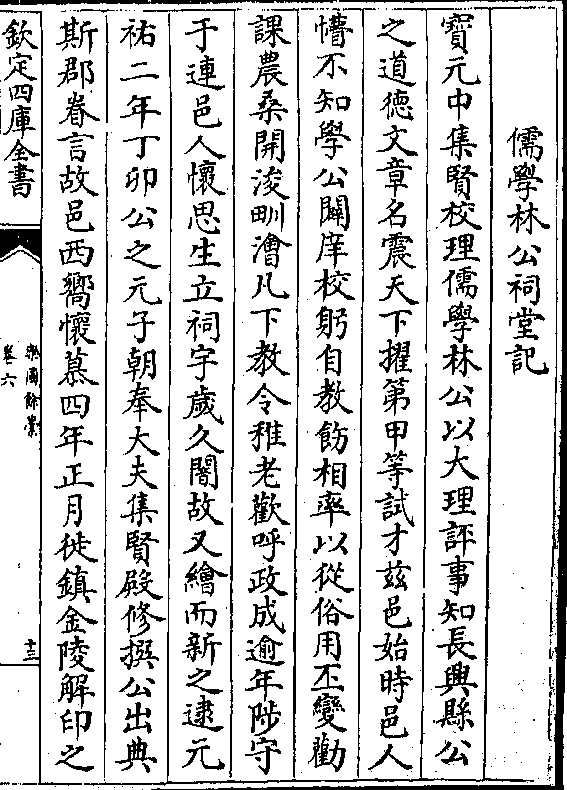 儒學林公祠堂記
寶元中集賢校理儒學林公以大理評事知長興縣公
之道德文章名震天下擢第甲等試才茲邑始時邑人
懵不知學公闢庠校躬自教飭相率以從俗用丕變勸
課農桑開浚畎澮凡下教令稚老歡呼政成逾年陟守
于連邑人懷思生立祠宇歲久闇故又繪而新之逮元
祐二年丁卯公之元子朝奉大夫集賢殿修撰公出典
斯郡眷言故邑西嚮懷慕四年正月徙鎮金陵解印之
欽定四庫全書
樂圃餘藁
卷六
十三